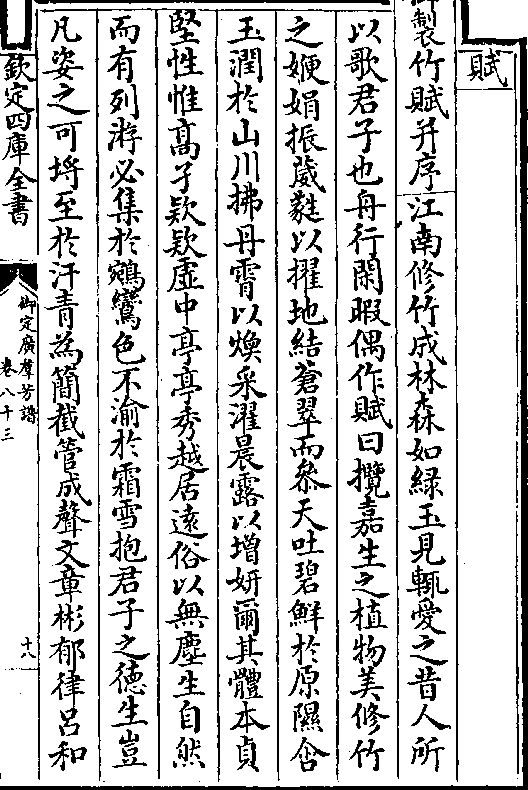 賦
御製竹賦并序江南修竹成林森如緑玉見輒愛之昔人所
以歌君子也舟行閑暇偶作賦曰攬嘉生之植物美修竹
之㛹娟振葳蕤以擢地結蒼翠而叅天吐碧鮮於原隰含
玉潤於山川拂丹霄以煥采濯晨露以增妍爾其體本貞
堅性惟髙孑欵欵虚中亭亭秀越居遠俗以無塵生自然
而有列游必集於鵷鸞色不渝於霜雪抱君子之徳生豈
凡姿之可埒至於汗青為簡截管成聲文章彬郁律吕和
欽定四庫全書
御定廣羣芳譜
卷八十三
十八